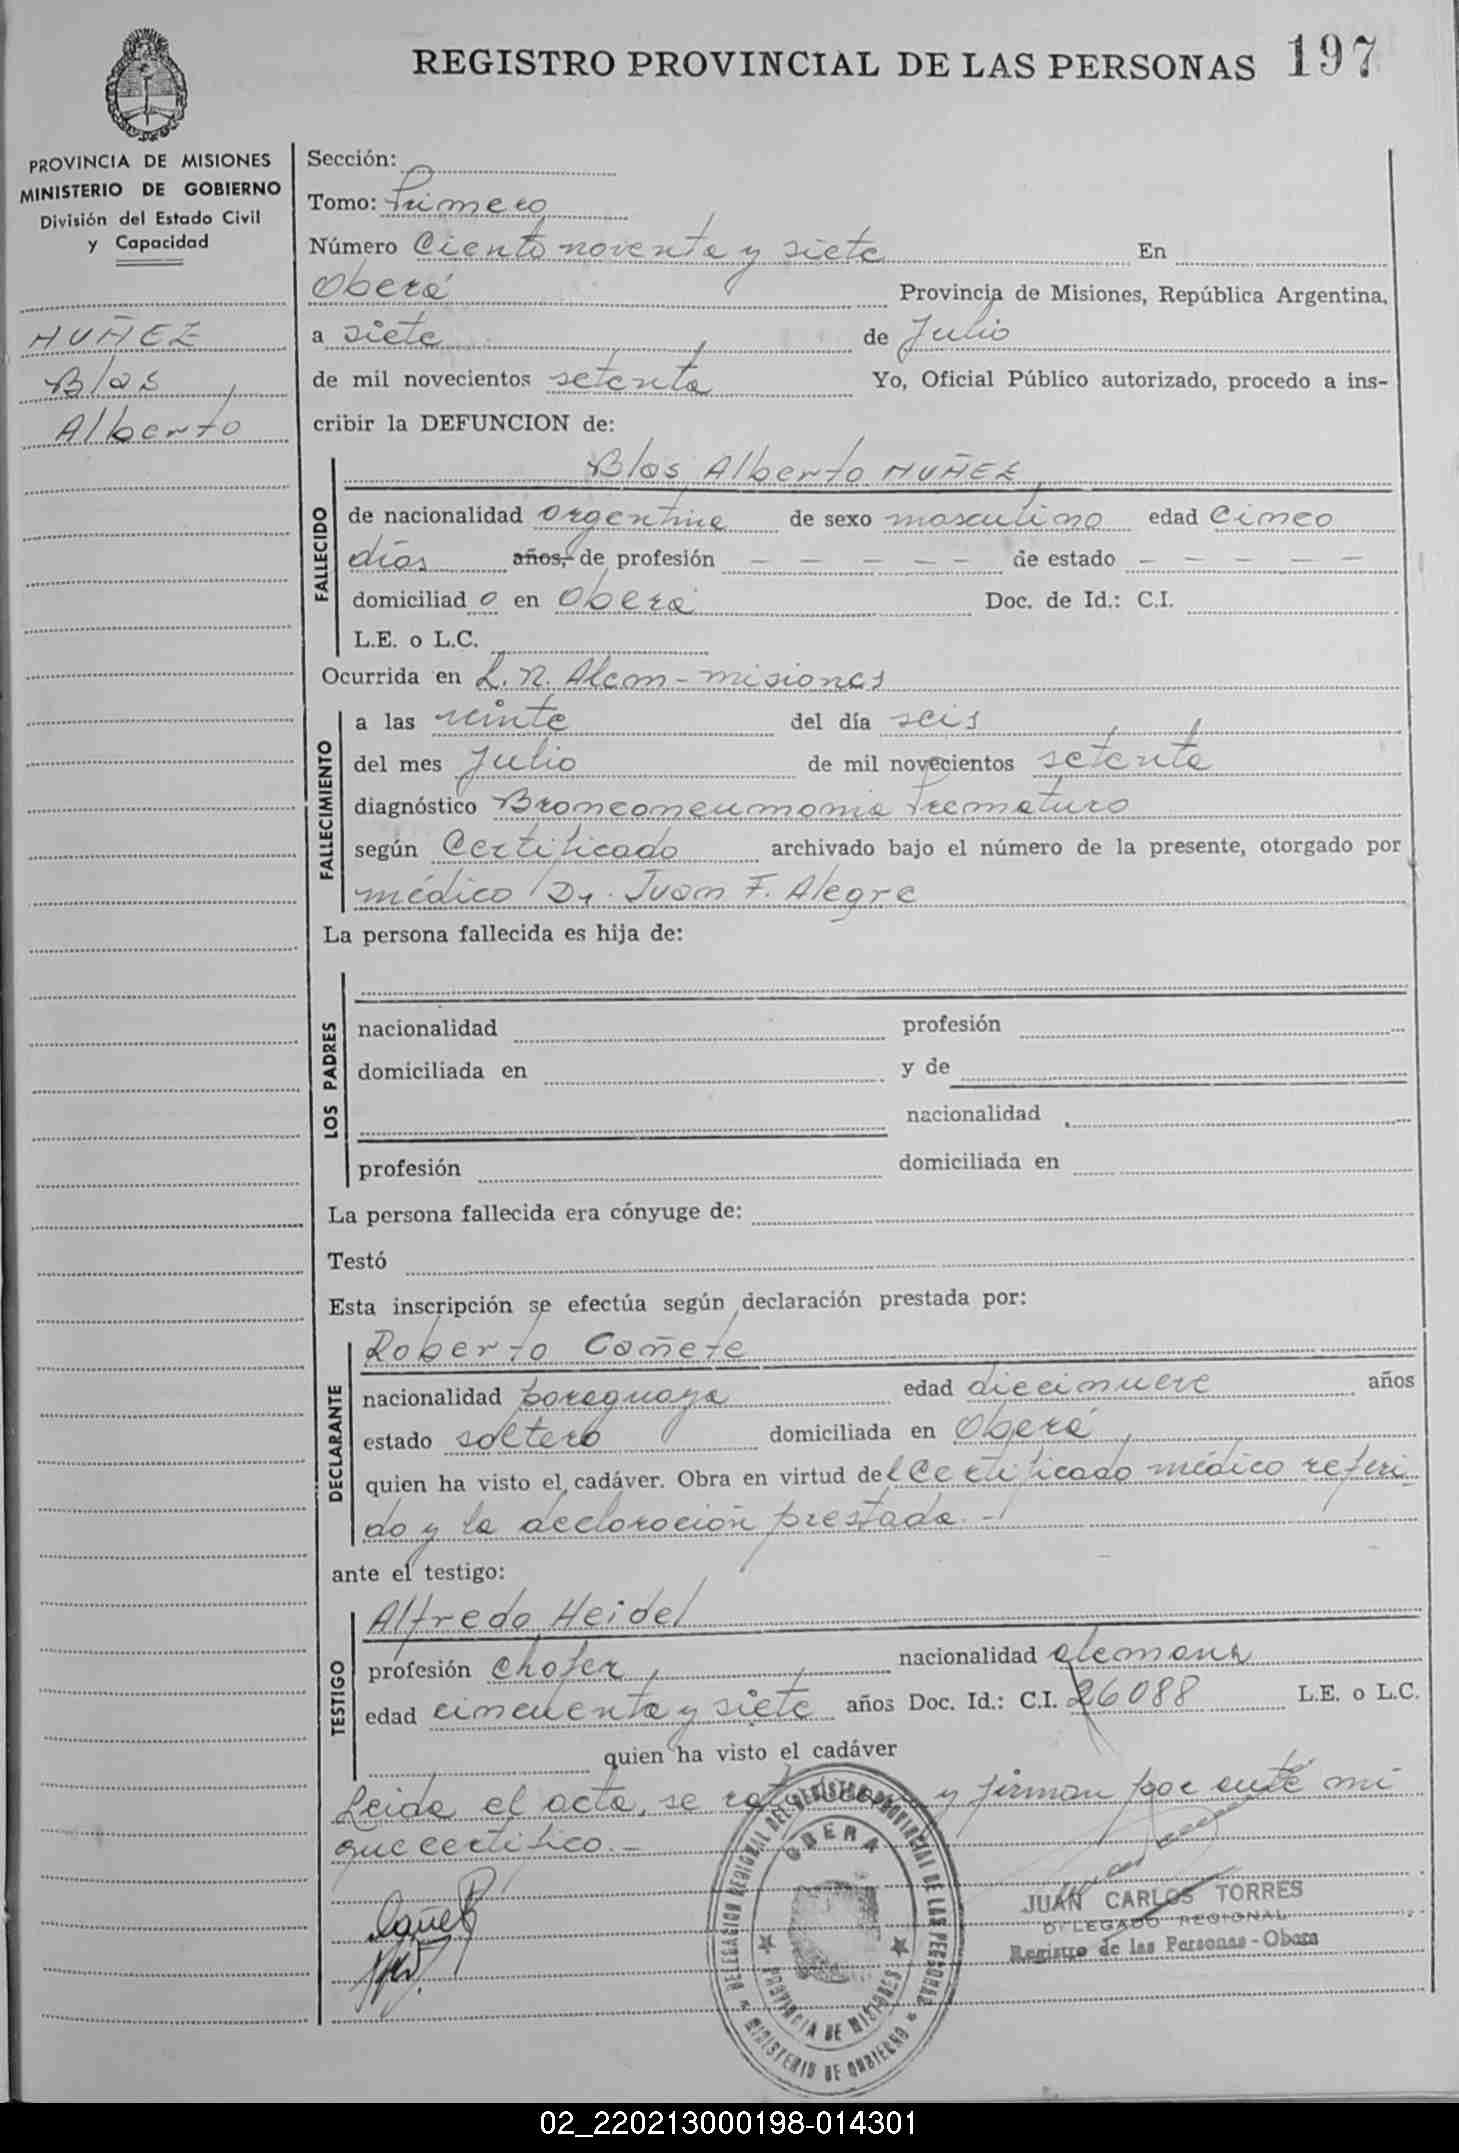 REGISTRO PROVINCIAL DE LAS PERSONAS 197
PROVINCIA DE MISIONES
MINISTERIO DE GOBIERNO
División del Estado Civil
y Capacidad
MUÑEZ
Blas
Alberto
Sección:
Tomo: Primero
Número Ciento noventa y siete En
Oberá Provincia de Misiones, República Argentina,
a siete de Julio
de mil novecientos setenta Yo, Oficial Público autorizado, procedo a ins-
cribir la DEFUNCION de:
Blas Alberto MUÑEZ
FALLECIDO
de nacionalidad argentina de sexo masculino edad Cinco
días años, de profesión — — — — — de estado — — — — —
domiciliad o en Oberá Doc. de Id.: C.I.
L.E. o L.C.
Ocurrida en L. N. Alem - misiones
FALLECIMIENTO
a las veinte del día seis
del mes Julio de mil novecientos setenta
diagnóstico Bronconeumonia Prematuro
según Certificado archivado bajo el número de la presente, otorgado por
médico Dr. Juan F. Alegre
La persona fallecida es hija de:
LOS PADRES
nacionalidad profesión
domiciliada en y de
nacionalidad
profesión domiciliada en
La persona fallecida era cónyuge de:
Testó
Esta inscripción se efectúa según declaración prestada por:
DECLARANTE
Roberto Cañete
nacionalidad paraguaya edad diecinueve años
estado soltero domiciliada en Oberá
quien ha visto el cadáver. Obra en virtud del Certificado médico referi-
do y la declaración prestada.-
ante el testigo:
TESTIGO
Alfredo Heidel
profesión chofer nacionalidad alemana
edad cincuenta y siete años Doc. Id.: C.I. 26088 L.E. o L.C.
quien ha visto el cadáver
Leida el acta, se y firman por ante mi
que certifico.-
Cañete R
DELEGACION REGIONAL DEL REGISTRO PROVINCIAL DE LAS PERSONAS
OBERA
PROVINCIA DE MISIONES
MINISTERIO DE GOBIERNO
JUAN CARLOS TORRES
DELEGADO REGIONAL
Registro de las Personas - Obera
02_220213000198-014301